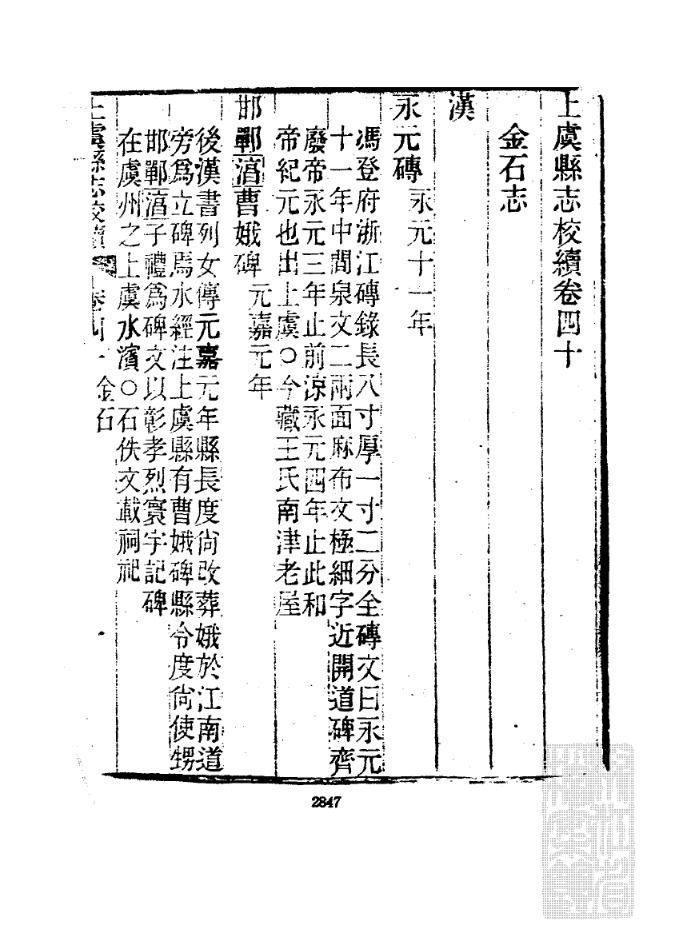 上虞縣志校續卷四十
金石志
漢
永元磚 永元十一年
馮登府浙江磚錄長八寸厚一寸二分全磚文曰永元
十一年中間泉文二兩面麻布文極細字近開道碑齊
廢帝永元三年止前涼永元四年止此和
帝紀元也出上虞○今藏王氏南津老屋
邯鄲湻曹娥碑 元嘉元年
後漢書列女傳元嘉元年縣長度尙改葬娥於江南道
旁爲立碑焉水經注上虞縣有曹娥碑縣令度尙使甥
邯鄲湻子禮爲碑文以彰孝烈寰宇記碑
在虞州之上虞水濱○石佚文載祠祀
上虞縣志校續 卷四十 金石
2847